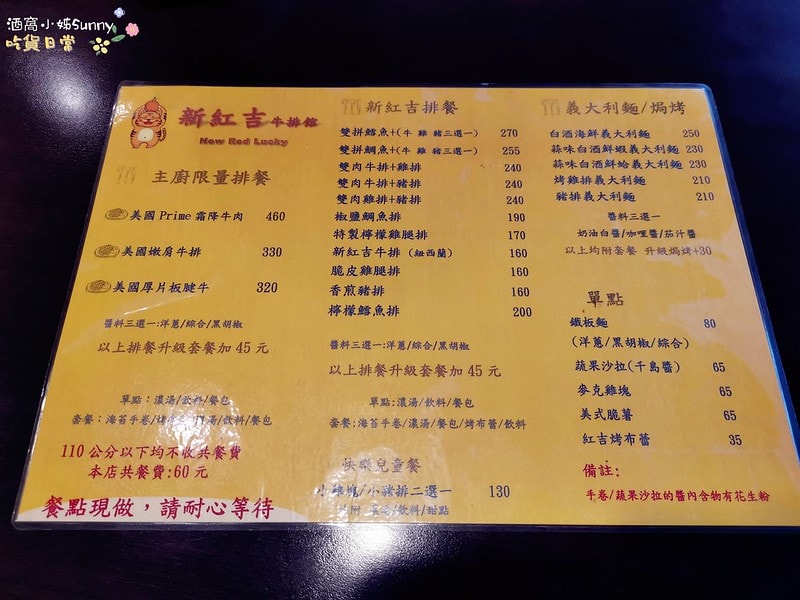 酒窩小姊Sunny
吃貨日常
新紅吉牛排館
New Red Lucky
主廚限量排餐
美國Prime霜降牛肉 460
美國嫩肩牛排 330
美國厚片板腱牛 320
醬料三選一:洋蔥/綜合/黑胡椒
以上排餐升級套餐加45元
單點:濃湯/飲料/餐包
套餐:海苔手卷/烤布蕾/濃湯/飲料/餐包
110公分以下均不收共餐費
本店共餐費:60元
餐點現做，請耐心等待
新紅吉排餐
雙拼鱈魚+(牛 雞 豬三選一) 270
雙拼鯛魚+(牛 雞 豬三選一) 255
雙肉牛排+雞排 240
雙肉牛排+豬排 240
雙肉雞排+豬排 240
椒鹽鯛魚排 190
特製檸檬雞腿排 170
新紅吉牛排(紐西蘭) 160
脆皮雞腿排 160
香煎豬排 160
檸檬鱈魚排 200
醬料三選一:洋蔥/綜合/黑胡椒
以上排餐升級套餐加45元
單點:濃湯/飲料/餐包
套餐:海苔手卷/濃湯/餐包/烤布蕾/飲料
快樂兒童餐
小雞塊/小豬排二選一 130
濃湯/飲料/甜點
義大利麵/焗烤
白酒海鮮義大利麵 250
蒜味白酒鮮蝦義大利麵 230
蒜味白酒鮮蛤義大利麵 230
烤雞排義大利麵 210
豬排義大利麵 210
醬料三選一
奶油白醬/咖哩醬/茄汁醬
以上均附套餐 升級焗烤+30
單點
鐵板麵 80
(洋蔥/黑胡椒/綜合)
蔬果沙拉(千島醬) 65
麥克雞塊 65
美式脆薯 65
紅吉烤布蕾 35
備註:
手卷/蔬果沙拉的醬內含物有花生粉